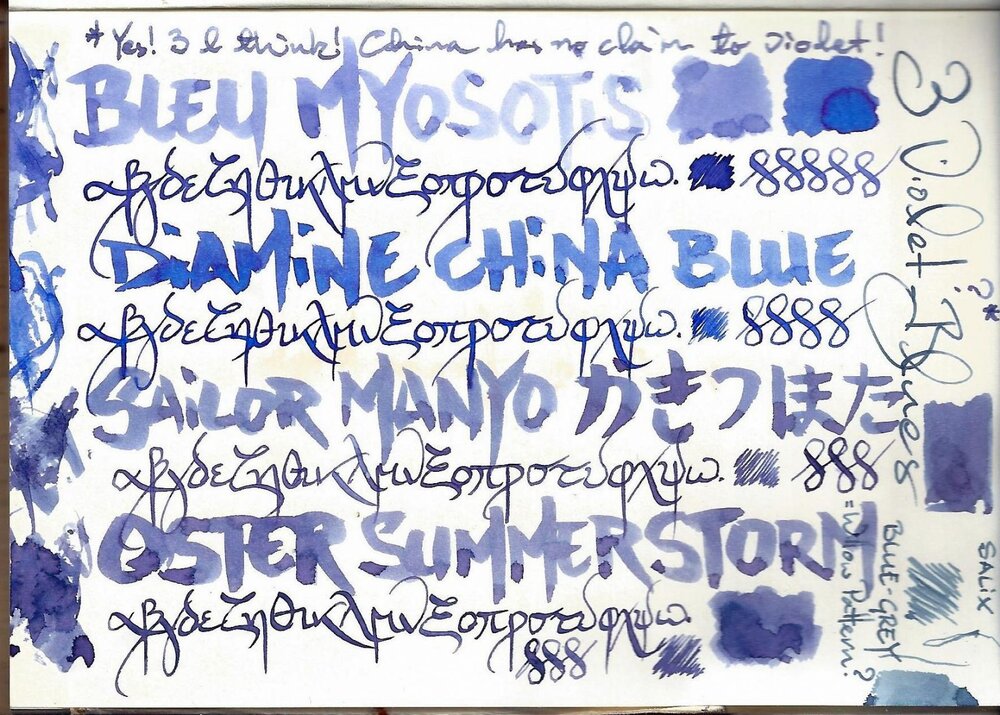 * Yes! 3 I think! China has no claim to violet!
BLEU MYOSOTiS
αβγδεζηθικλμνξοπρστυφχψω. 88888
DiAMiNE CHiNA BLUE
αβγδεζηθικλμνξοπρστυφχψω. 8888
SAiLOR MANYO かきつはた
αβγδεζηθικλμνξοπρστυφχψω. 888
OSTER SUMMERSTORM
αβγδεζηθικλμνξοπρστυφχψω.
888
3 Violet Blues
?*
SALiX
BLUE-GREY
=Willow Pattern?